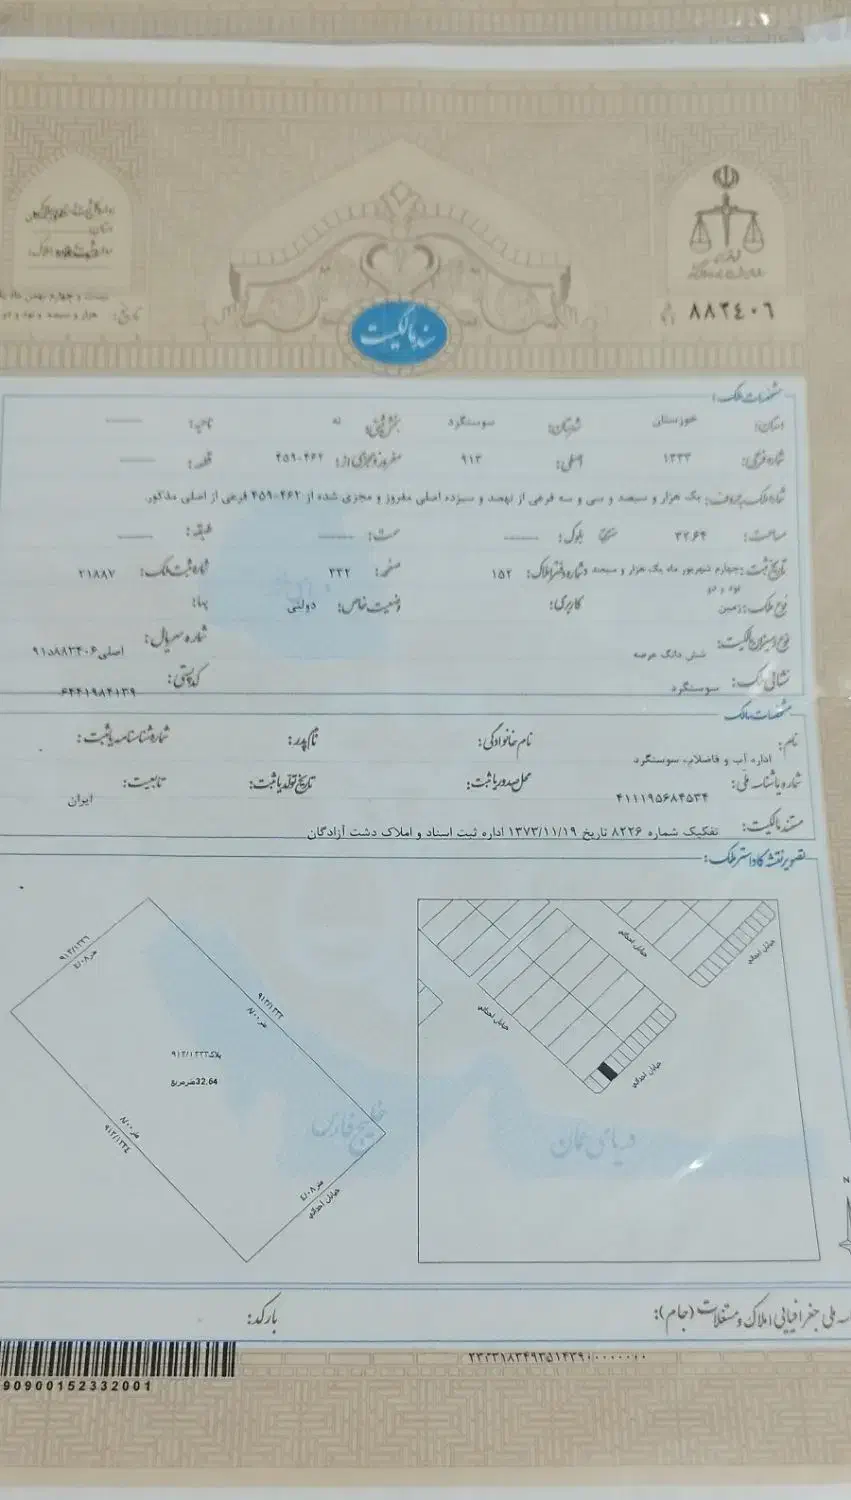 ۸۸۳۴۰۶
تاریخ: بیست و چهارم بهمن ماه یک هزار و سیصد و نود و دو
سند مالکیت
مشخصات ملک:
استان: خوزستان شهرستان: سوسنگرد بخش ثبتی: نه ناحیه: ------
شماره فرعی: ۱۳۳۳ اصلی: ۹۱۳ مفروز و مجزی از: ۴۵۹-۴۶۲ قطعه: ------
شماره ملک به حروف: یک هزار و سیصد و سی و سه فرعی از نهصد و سیزده اصلی مفروز و مجزی شده از ۴۶۲-۴۵۹ فرعی از اصلی مذکور.
مساحت: ۳۲.۶۴ بلوک: ------ سمت: ------ طبقه: ------
تاریخ ثبت: چهارم شهریور ماه یک هزار و سیصد و نود و دو شماره دفتر املاک: ۱۵۲ صفحه: ۲۳۲ شماره ثبت ملک: ۲۱۸۸۷
نوع ملک: زمین کاربری: وضعیت خاص: دولتی بهاء:
نوع و میزان مالکیت: شش دانگ عرصه شماره سریال: اصلی ۹۱۵۸۸۳۴۰۶
نشانی ملک: سوسنگرد کد پستی: ۶۴۴۱۹۸۴۱۳۹
مشخصات مالک
نام: اداره آب و فاضلاب سوسنگرد نام خانوادگی: نام پدر: شماره شناسنامه یا ثبت:
شماره یا شناسه ملی: ۴۱۱۱۹۵۶۸۴۵۳۴ محل صدور یا ثبت: تاریخ تولد یا ثبت: تابعیت: ایران
مستند مالکیت: تفکیک شماره ۸۲۲۶ تاریخ ۱۳۷۳/۱۱/۱۹ اداره ثبت اسناد و املاک دشت آزادگان
تصویر نقشه کاداستر ملک:
۴/۰۸ متر
۹۱۳/۱۳۳۲
۸/۰۰ متر
پلاک ۹۱۳/۱۳۳۳
32,64 مترمربع
۸/۰۰ متر
۹۱۳/۱۳۳۴
۴/۰۸ متر
خیابان احداثی
خیابان احداثی
خیابان احداثی
خیابان احداثی
خیابان احداثی
خلیج فارس
دریای عمان
N
ملی جغرافیایی املاک و مستغلات (جام):
بارکد:
909001523320​01